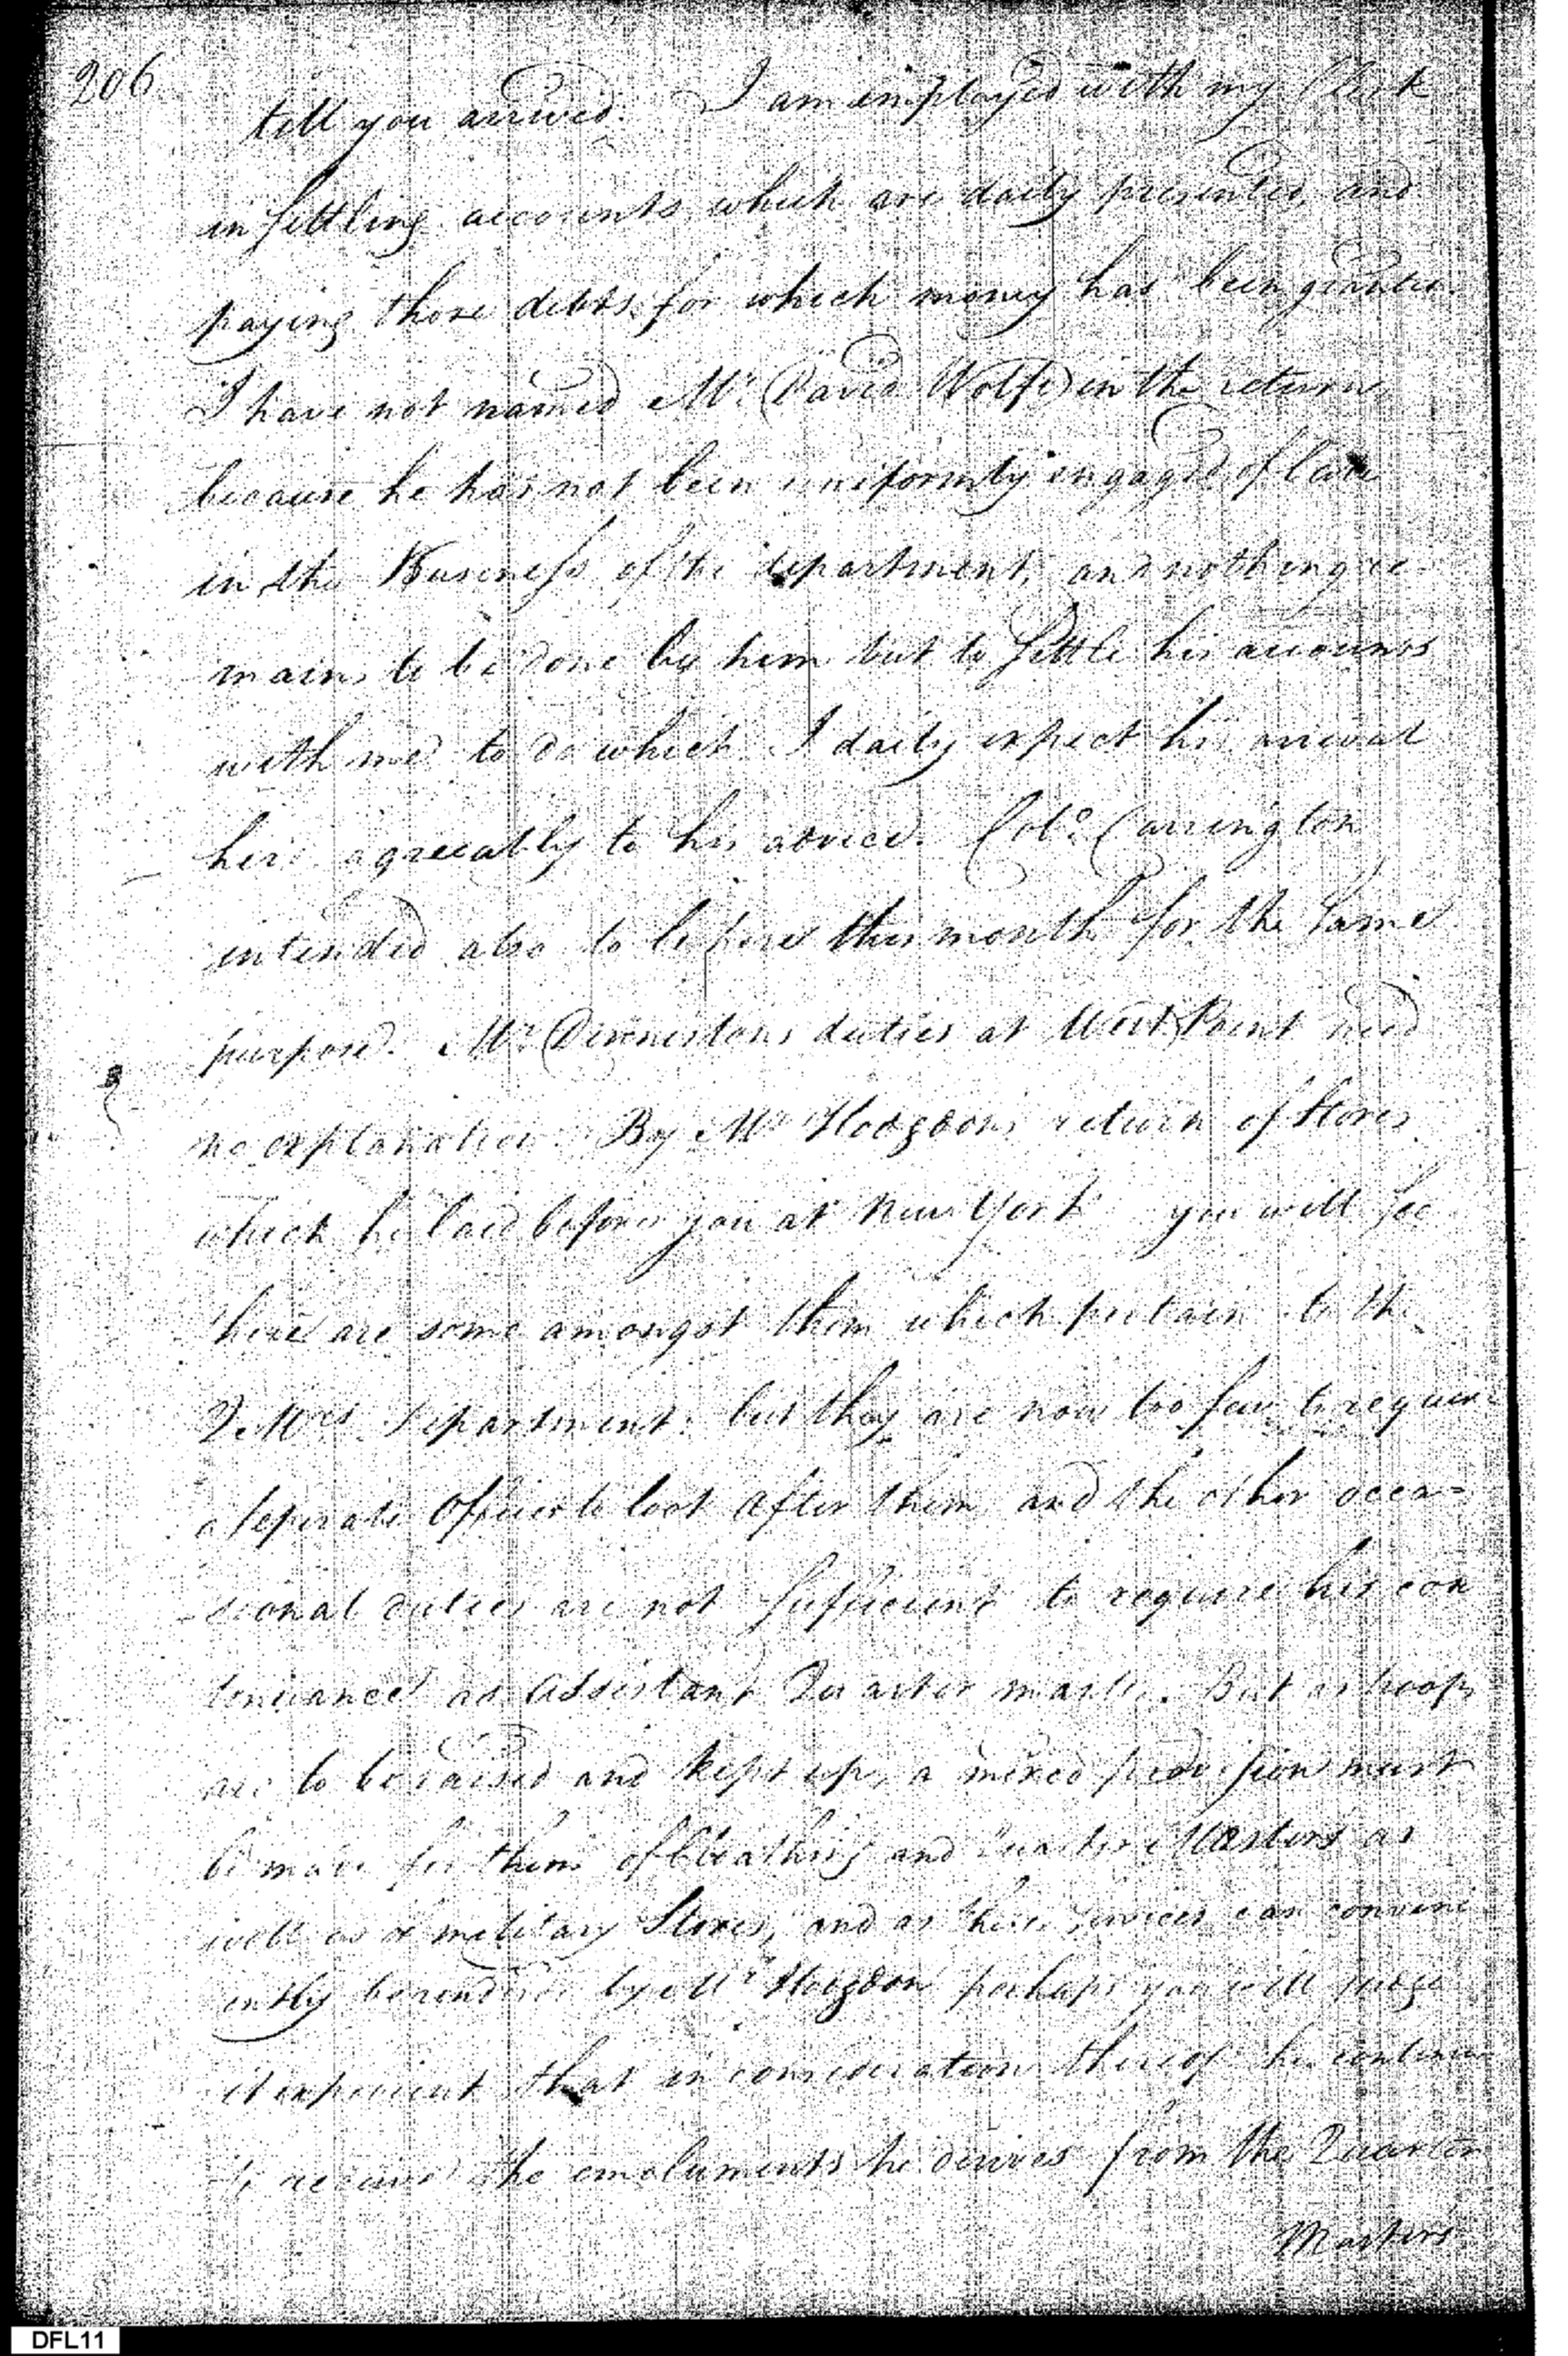 206
till you arrived. I am employed with my Clerk
in settling accounts which are daily presented, and
paying those debts for which money has been granted.
I have not named Mr. David Wolfe in the return,
because he has not been uniformly engaged of late
in the Business of the department, and nothing re-
mains to be done by him but to settle his accounts
with me to do which I daily expect his arrival
here agreeably to his advice. Colo. Carrington
intended also to be here this month for the same
purpose. Mr. Dennistons duties at West Point need
no explanation. By Mr Hodgdons return of Stores
which he laid before you at New York you will see
there are some amongst them which pertain to the
Q. Mrs. department: but they are now too few to require
a seperate Officer to look after them and the other occa=
sional duties are not sufficient to require his con
tinuance as Assistant Quarter master. But as troops
are to be raised and kept up, a mixed provision must
be made for them of Cloathing and Quarter Masters as
well as of military Stores, and as these services can conveni
ently be rendered by Mr Hodgdon perhaps you will judge
it expedient that in consideration thereof he continue
to receive the emoluments he derives from the Quarter
Masters
DFL11